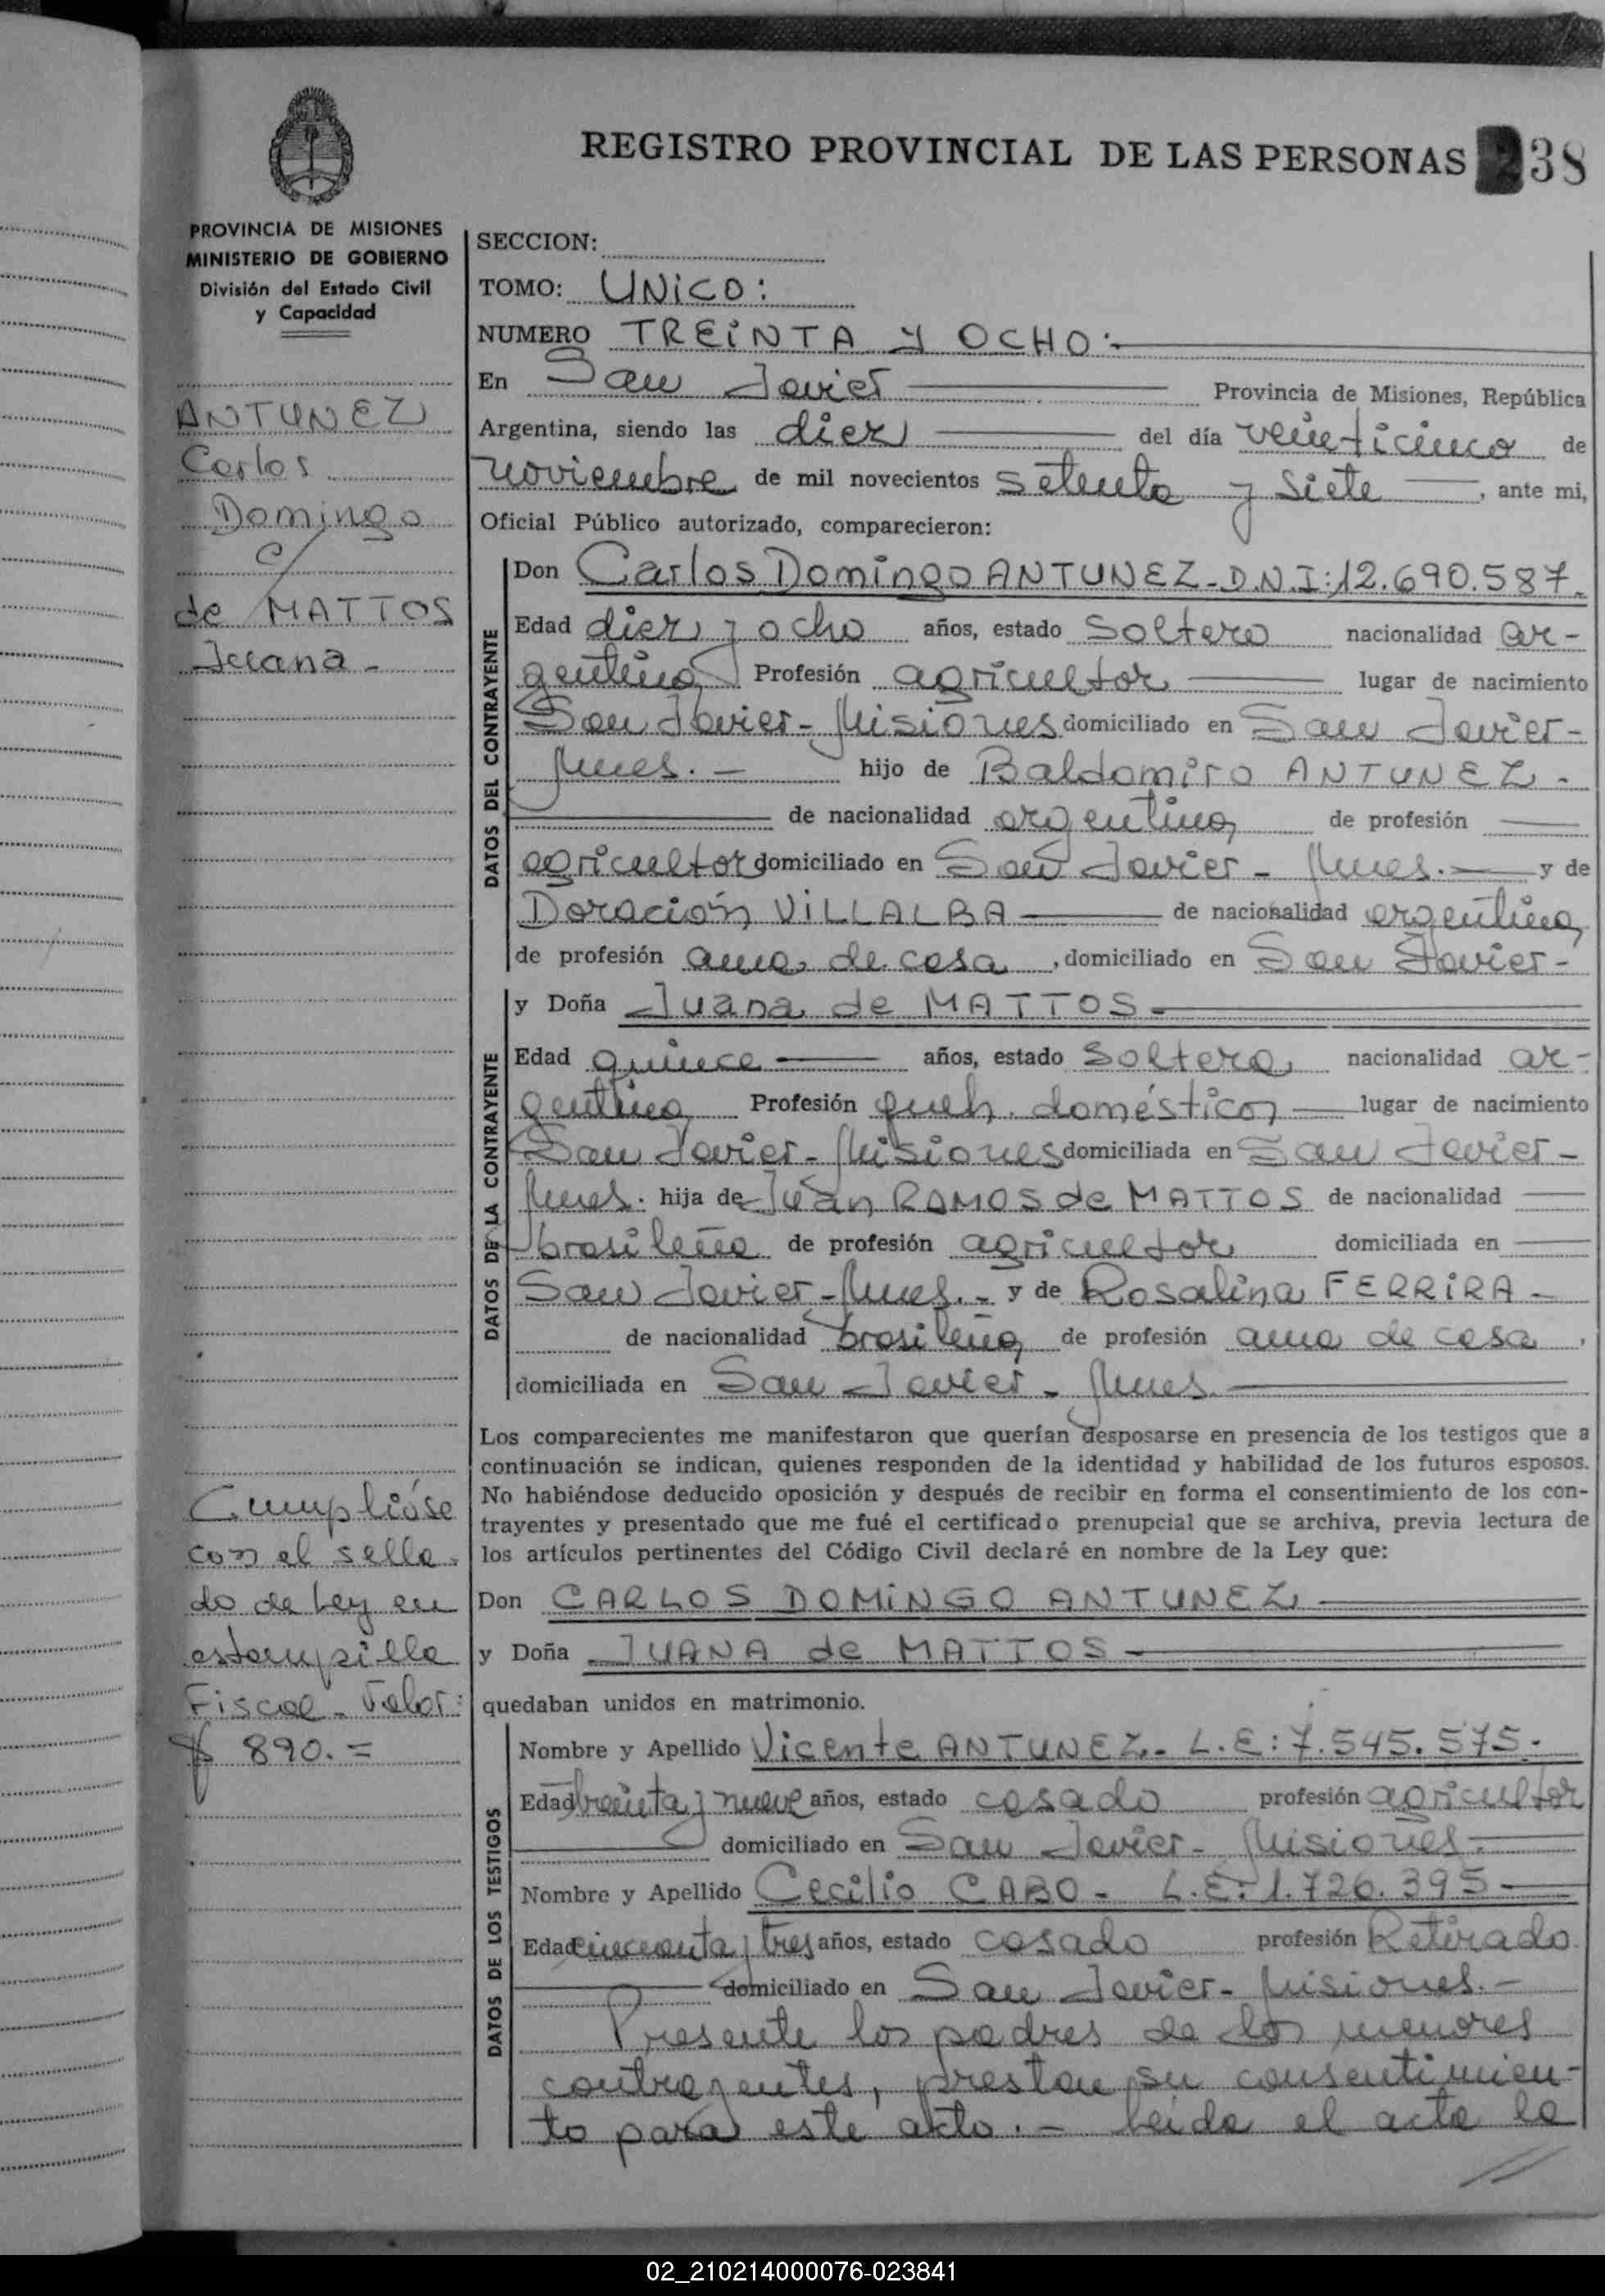 REGISTRO PROVINCIAL DE LAS PERSONAS 238
PROVINCIA DE MISIONES
MINISTERIO DE GOBIERNO
División del Estado Civil
y Capacidad
ANTUNEZ
Carlos
Domingo
c/
de MATTOS
Juana -
SECCION:
TOMO: UNiCO:
NUMERO TREiNTA y OCHO:
En San Javier Provincia de Misiones, República
Argentina, siendo las diez del día veinticinco de
noviembre de mil novecientos setenta y siete, ante mi,
Oficial Público autorizado, comparecieron:
DATOS DEL CONTRAYENTE
Don Carlos Domingo ANTUNEZ - D.N.I: 12.690.587.
Edad diez y ocho años, estado soltero nacionalidad ar-
gentina Profesión agricultor lugar de nacimiento
San Javier - Misiones domiciliado en San Javier -
Mnes. - hijo de Baldomiro ANTUNEZ -
de nacionalidad argentina de profesión
agricultor domiciliado en San Javier - Mnes. - y de
Doración ViLLALBA de nacionalidad argentina
de profesión ama de casa, domiciliado en San Javier -
DATOS DE LA CONTRAYENTE
y Doña Juana de MATTOS -
Edad quince años, estado soltera nacionalidad ar-
gentina Profesión queh. domésticos lugar de nacimiento
San Javier - Misiones domiciliada en San Javier -
Mnes. hija de Juan RAMOS de MATTOS de nacionalidad
brasileña de profesión agricultor domiciliada en
San Javier - Mnes. - y de Rosalina FERRiRA -
de nacionalidad brasileña de profesión ama de casa,
domiciliada en San Javier - Mnes.
Los comparecientes me manifestaron que querían desposarse en presencia de los testigos que a
continuación se indican, quienes responden de la identidad y habilidad de los futuros esposos.
No habiéndose deducido oposición y después de recibir en forma el consentimiento de los con-
trayentes y presentado que me fué el certificado prenupcial que se archiva, previa lectura de
los artículos pertinentes del Código Civil declaré en nombre de la Ley que:
Don CARLOS DOMiNGO ANTUNEZ
y Doña JUANA de MATTOS -
quedaban unidos en matrimonio.
Cumplióse
con el sella-
do de Ley en
estampilla
Fiscal - Valor:
$ 890.=
DATOS DE LOS TESTIGOS
Nombre y Apellido Vicente ANTUNEZ - L.E: 7.545.575.
Edad treinta y nueve años, estado casado profesión agricultor
domiciliado en San Javier - Misiones -
Nombre y Apellido Cecilio CABO - L.E: 1.726.395 -
Edad cincuenta y tres años, estado casado profesión Retirado
domiciliado en San Javier - Misiones. -
Presente los padres de los menores
contrayentes, prestan su consentimien-
to para este acto. - Leída el acta la
02_210214000076-023841